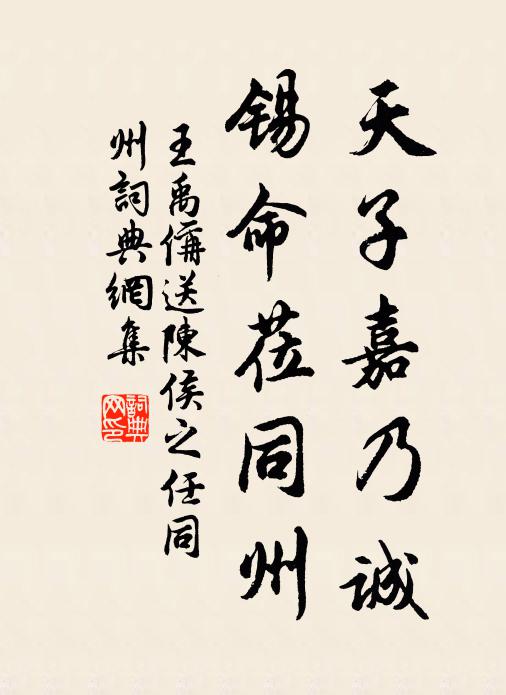 天子嘉乃誠
錫命莅同州
王禹偁送陳侯之任同
州詞典網集
詞典网印